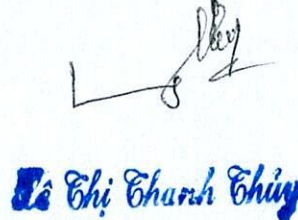 Lê Thị Thanh Thúy